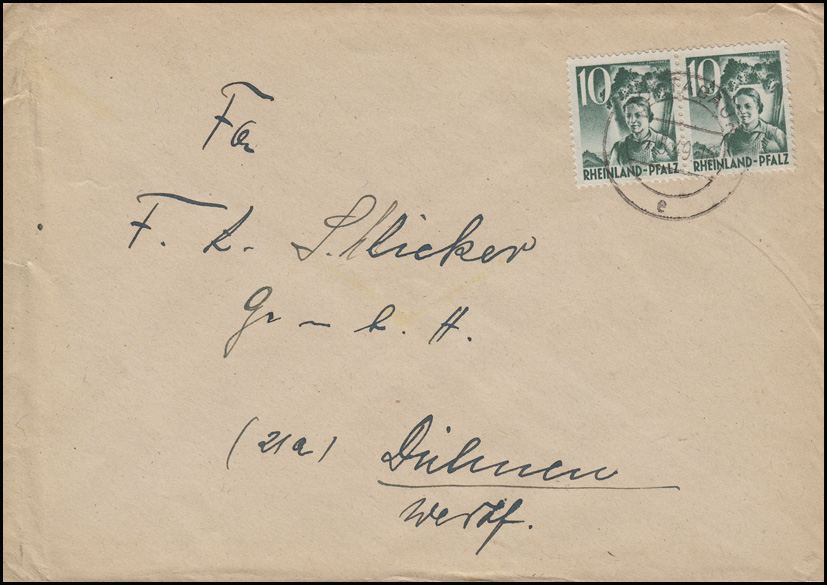 10 10
RHEINLAND-PFALZ RHEINLAND-PFALZ
e
Fa
F. L. Schlicker
G. m. b. H.
(21a) Dülmen
Westf.